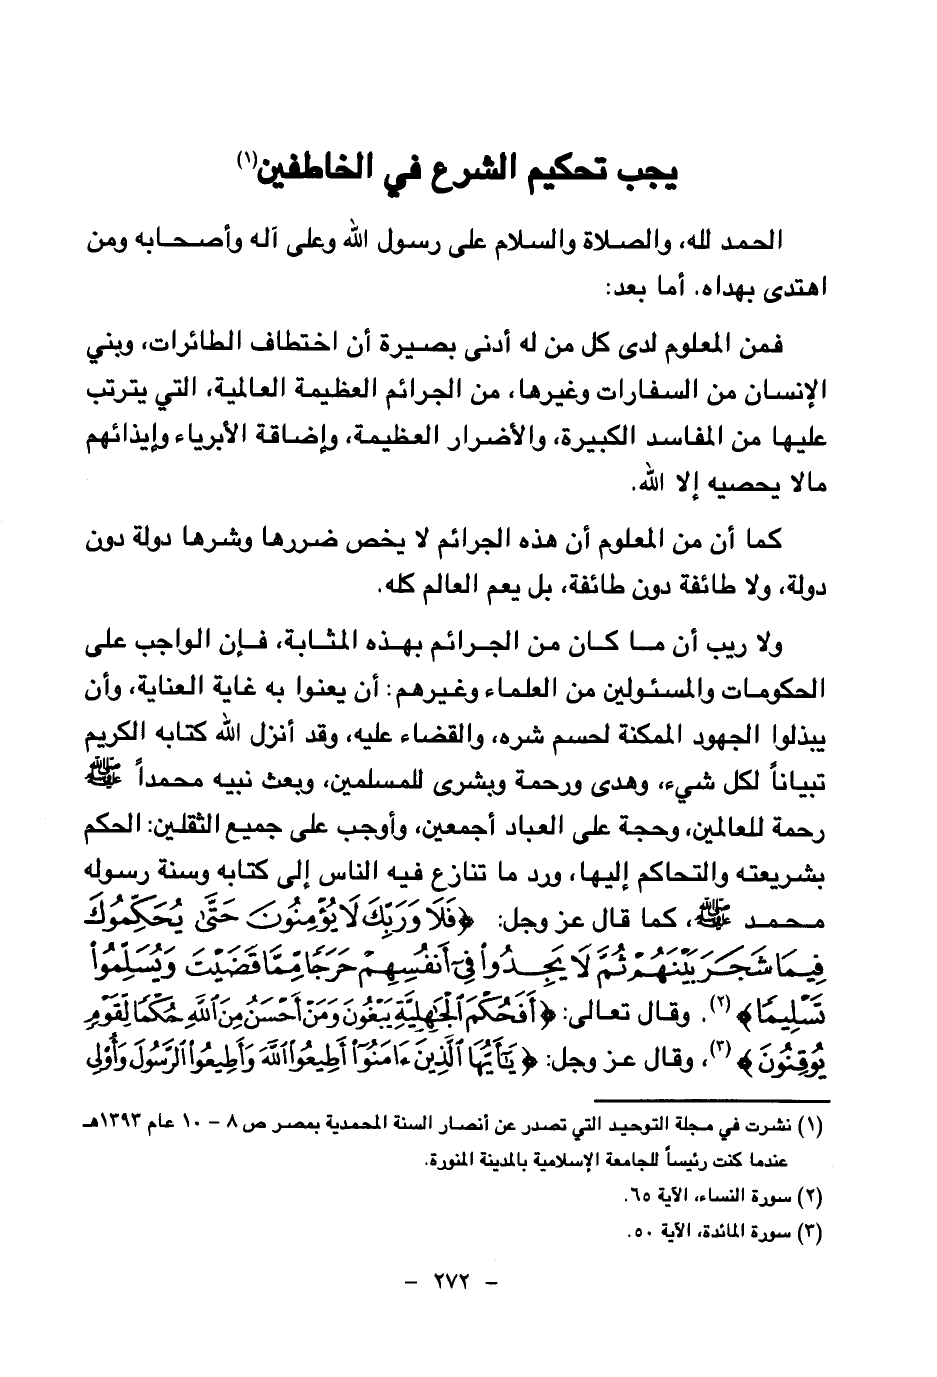 يجب تحكيم الشرع في الخاطفين(١)
الحمد لله، والصلاة والسلام على رسول الله وعلى آله وأصحابه ومن
اهتدى بهداه. أما بعد:
فمن المعلوم لدى كل من له أدنى بصيرة أن اختطاف الطائرات، وبني
الإنسان من السفارات وغيرها، من الجرائم العظيمة العالمية، التي يترتب
عليها من المفاسد الكبيرة، والأضرار العظيمة، وإضاقة الأبرياء وإيذائهم
مالا يحصيه إلا الله.
كما أن من المعلوم أن هذه الجرائم لا يخص ضررها وشرها دولة دون
دولة، ولا طائفة دون طائفة، بل يعم العالم كله.
ولا ريب أن ما كان من الجرائم بهذه المثابة، فإن الواجب على
الحكومات والمسئولين من العلماء وغيرهم: أن يعنوا به غاية العناية، وأن
يبذلوا الجهود الممكنة لحسم شره، والقضاء عليه، وقد أنزل الله كتابه الكريم
تبياناً لكل شيء، وهدى ورحمة وبشرى للمسلمين، وبعث نبيه محمداً ﷺ
رحمة للعالمين، وحجة على العباد أجمعين، وأوجب على جميع الثقلين: الحكم
بشريعته والتحاكم إليها، ورد ما تنازع فيه الناس إلى كتابه وسنة رسوله
محمد ﷺ، كما قال عز وجل: ﴿فَلَا وَرَبِّكَ لَا يُؤْمِنُونَ حَتَّىٰ يُحَكِّمُوكَ
فِيمَا شَجَرَ بَيْنَهُمْ ثُمَّ لَا يَجِدُوا۟ فِىٓ أَنفُسِهِمْ حَرَجًا مِّمَّا قَضَيْتَ وَيُسَلِّمُوا۟
تَسْلِيمًا﴾(٢). وقال تعالى: ﴿أَفَحُكْمَ ٱلْجَٰهِلِيَّةِ يَبْغُونَ وَمَنْ أَحْسَنُ مِنَ ٱللَّهِ حُكْمًا لِّقَوْمٍ
يُوقِنُونَ﴾(٣)، وقال عز وجل: ﴿يَٰٓأَيُّهَا ٱلَّذِينَ ءَامَنُوٓا۟ أَطِيعُوا۟ ٱللَّهَ وَأَطِيعُوا۟ ٱلرَّسُولَ وَأُو۟لِى
(١) نشرت في مجلة التوحيد التي تصدر عن أنصار السنة المحمدية بمصر ص ٨ – ١٠ عام ١٣٩٣هـ
عندما كنت رئيساً للجامعة الإسلامية بالمدينة المنورة.
(٢) سورة النساء، الآية ٦٥.
(٣) سورة المائدة، الآية ٥٠.
– ٢٧٢ –